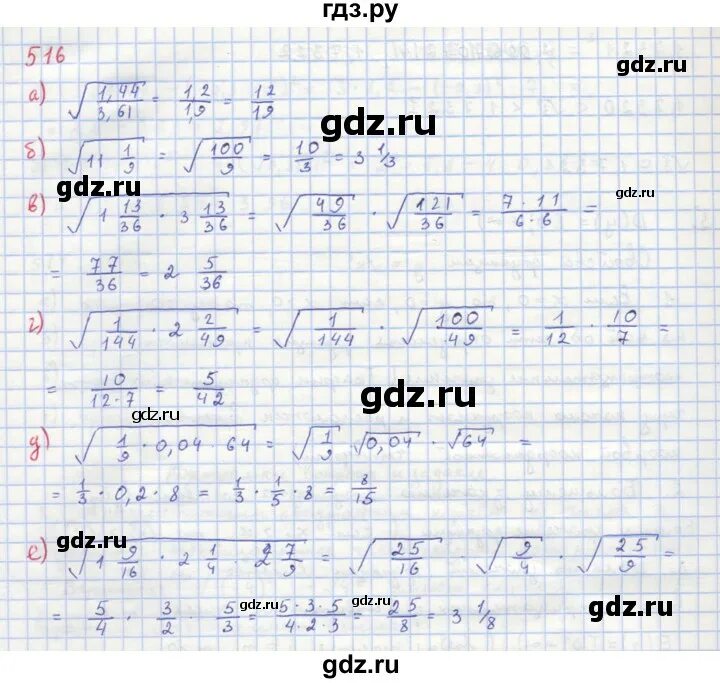 гдз.ру
516
gdz.ru
а) √(1,44/3,61) = 1,2/1,9 = 12/19
gdz.ru
б) √(11 1/9) = √(100/9) = 10/3 = 3 1/3
gdz.ru
gdz.ru
в) √(1 13/36 · 3 13/36) = √(49/36) · √(121/36) = 7·11/6·6 =
= 77/36 = 2 5/36
gdz.ru
г) √(1/144 · 2 2/49) = √(1/144) · √(100/49) = 1/12 · 10/7 =
= 10/12·7 = 5/42
gdz.ru
gdz.ru
д) √(1/9 · 0,04 · 64) = √(1/9) · √0,04 · √64 =
= 1/3 · 0,2 · 8 = 1/3 · 1/5 · 8 = 8/15
gdz.ru
gdz.ru
е) √(1 9/16 · 2 1/4 · 2 7/9) = √(25/16) · √(9/4) · √(25/9) =
= 5/4 · 3/2 · 5/3 = 5·3·5/4·2·3 = 25/8 = 3 1/8
gdz.ru
gdz.ru
gdz.ru